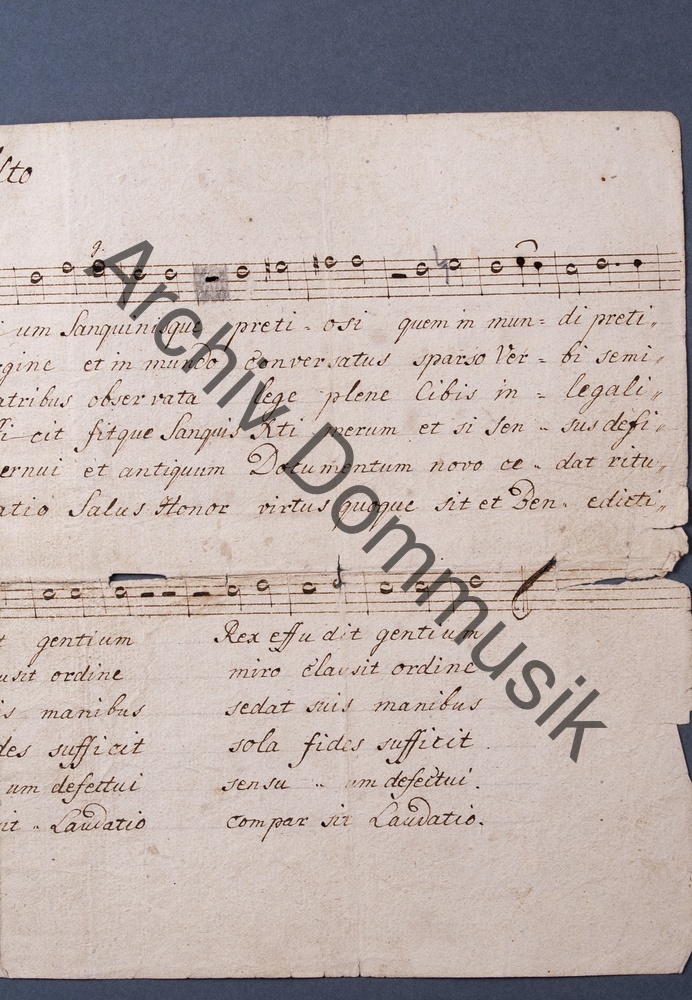 lto
g.
um Sanquinisque preti - osi quem in mun= di preti„
gine et in mundo conversatus sparso Ver - bi semi„
atribus observata lege plene Cibis in = legali„
cit fitque Sanquis Xti merum et si sen „ sus defi„
ernui et antiquum Documentum novo ce „ dat ritu„
atio Salus Honor virtus quoque sit et Ben - edicti„
t gentium Rex effu dit gentium
usit ordine miro clausit ordine
is manibus sedat suis manibus
des sufficit sola fides sufficit.
um defectui sensu „ um defectui.
it „ Laudatio compar sit Laudatio.
Archiv Dommusik